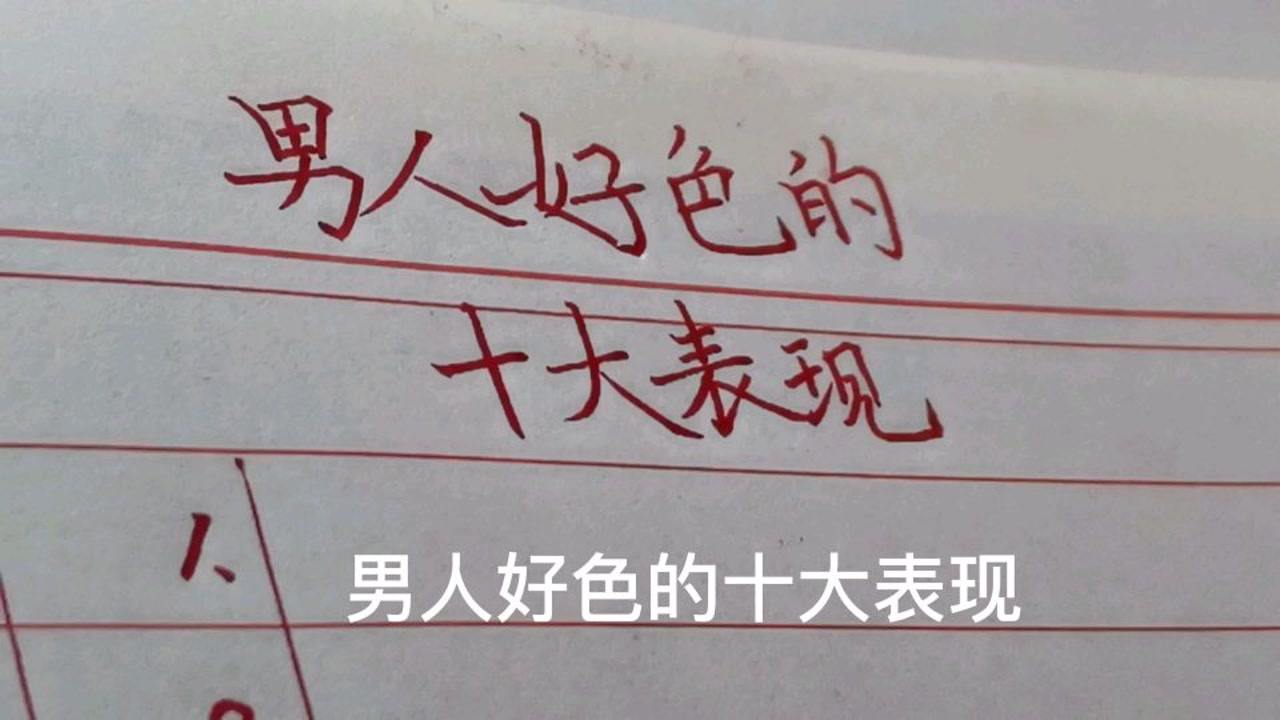 男人好色的
十大表现
1、
男人好色的十大表现